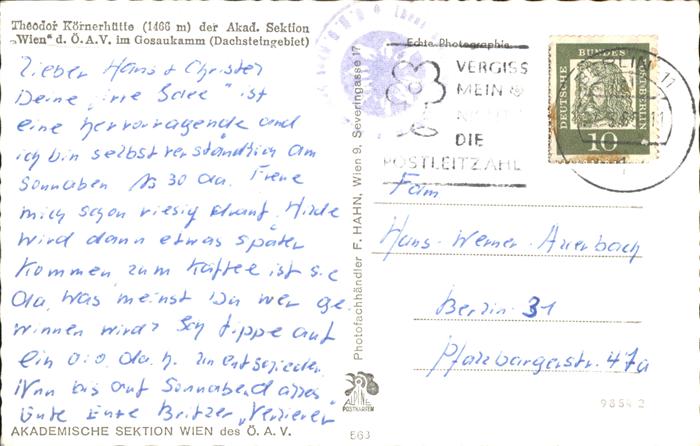 Theodor Körnerhütte (1466 m) der Akad. Sektion
„Wien" d. Ö. A. V. im Gosaukamm (Dachsteingebiet)
Lieber Hans + Christel
Deine „irre Idee" ist
eine hervorragende und
ich bin selbstverständlich am
Sonnabend 15 30 da. Freue
mich schon riesig drauf. Hilde
wird dann etwas später
kommen zum Kaffee ist sie
da. Was meinst Du wer ge-
winnen wird? Ich tippe auf
ein 0:0 d.h. unentschieden
Nun bis auf Sonnabend alles
Gute Eure Britzer
AKADEMISCHE SEKTION WIEN des Ö. A. V.
Photofachhändler F. HAHN, Wien 9, Severingasse 17
ALPINE
POSTKARTEN
563
Echte Photographie
VERGISS
MEIN
NICHT
DIE
POSTLEITZAHL
BERLIN
11
DEUTSCHE BUNDESPOST BERLIN
10
Fam.
Hans-Werner Auerbach
Berlin 31
Pfalzburgerstr. 47a
9854 2